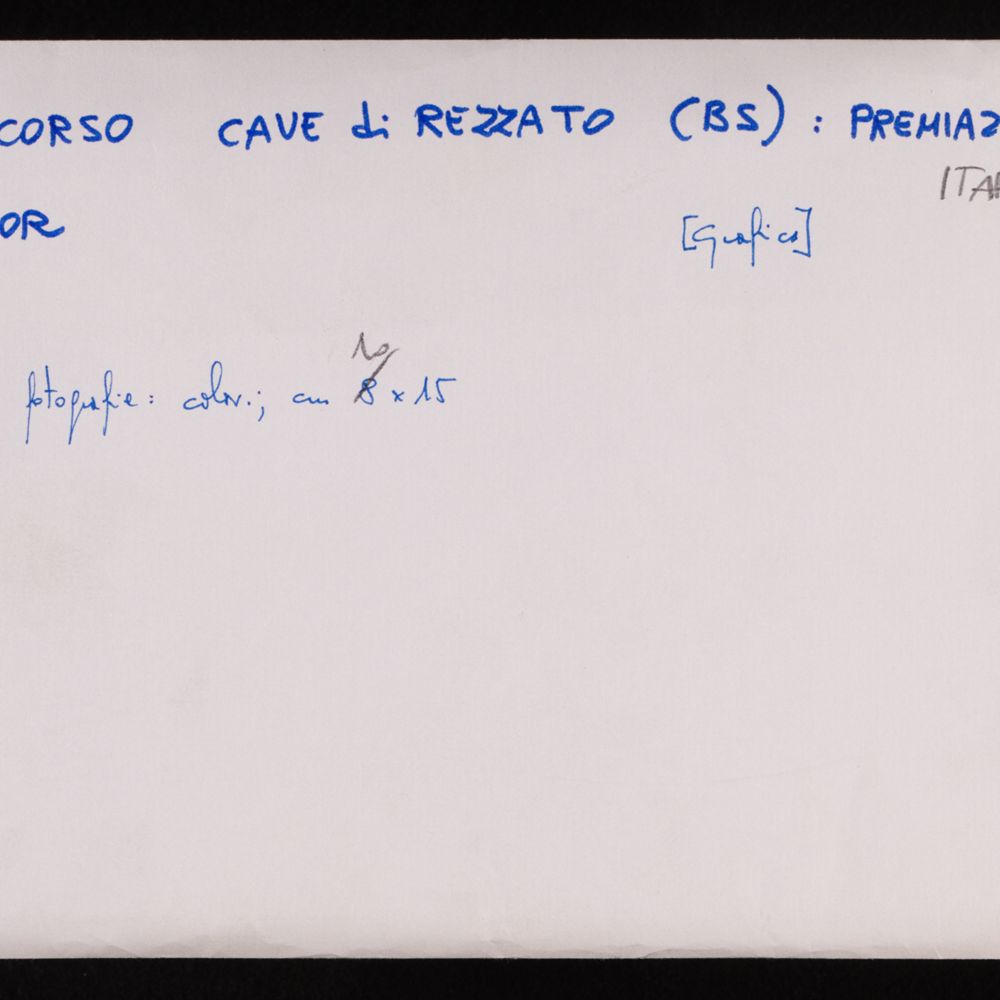 CORSO CAVE di REZZATO (BS) : PREMIAZ
ITA
OR [Grafica]
10
fotografie: color.; cm 8 x 15